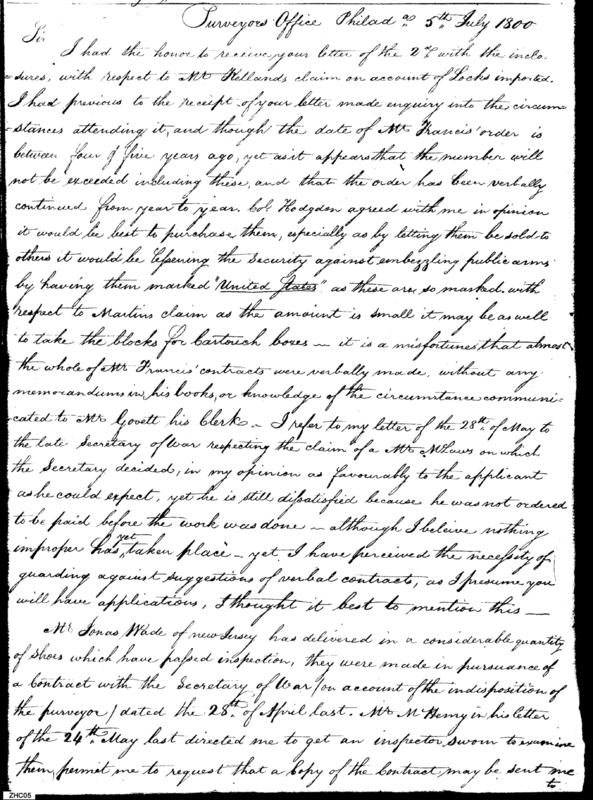 Purveyors Office Philad.as 5th July 1800
Sir
I had the honor to receive your letter of the 2nd with the inclo-
-sures, with respect to Mr Kellands claim on account of Locks imported.
I had previous to the receipt of your letter made enquiry into the circum-
-stances attending it, and though the date of Mr Francis' order is
between four & five years ago, yet as it appears that the number will
not be exceeded including these, and that the order has been verbally
continued from year to year. Col. Hodgdon agreed with me in opinion
it would be best to purchase them, especially as by letting them be sold to
others it would be lessening the Security against embezzling public arms
by having them marked "United States" as these are so marked. with
respect to Martins claim as the amount is small it may be as well
to take the blocks for Cartouch boxes — it is a misfortune that almost
the whole of Mr Francis' contracts were verbally made, without any
memorandums in his books, or knowledge of the circumstance communi-
-cated to Mr Govett his Clerk — I refer to my letter of the 28th of May to
the late Secretary of War respecting the claim of a Mr McLaws on which
the Secretary decided, in my opinion as favourably to the applicant
as he could expect, yet he is still dissatisfied because he was not ordered
to be paid before the work was done — although I beleive nothing
improper has yet taken place — yet I have perceived the necessity of
guarding against suggestions of verbal contracts, as I presume you
will have applications, I thought it best to mention this —
Mr Jonas Wade of new Jersey has delivered in a considerable quantity
of Shoes which have passed inspection, they were made in pursuance of
a Contract with the Secretary of War /on account of the indisposition of
the purveyor/ dated the 25th of April last. Mr McHenry in his letter
of the 24th May last directed me to get an inspector sworn to examine
them, permit me to request that a Copy of the Contract may be sent me
to
ZHC05